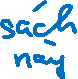 sách
này